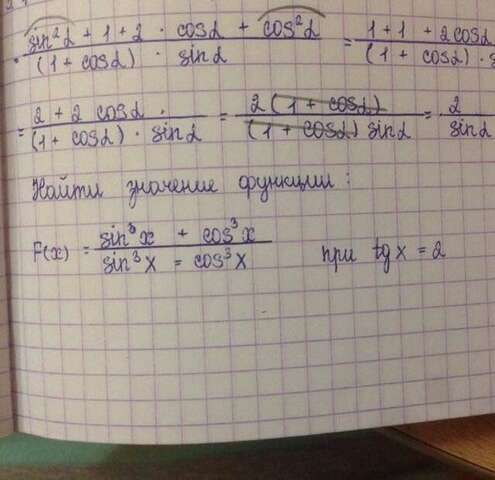 sin²α + 1 + 2 · cosα + cos²α / (1 + cosα) · sinα = 1 + 1 + 2cosα / (1 + cosα) ·
= 2 + 2 cosα · / (1 + cosα) · sinα = 2 (1 + cosα) / (1 + cosα) sinα = 2 / sinα
Найти значение функции :
F(x) = sin³x + cos³x / sin³x = cos³x при tg x = 2